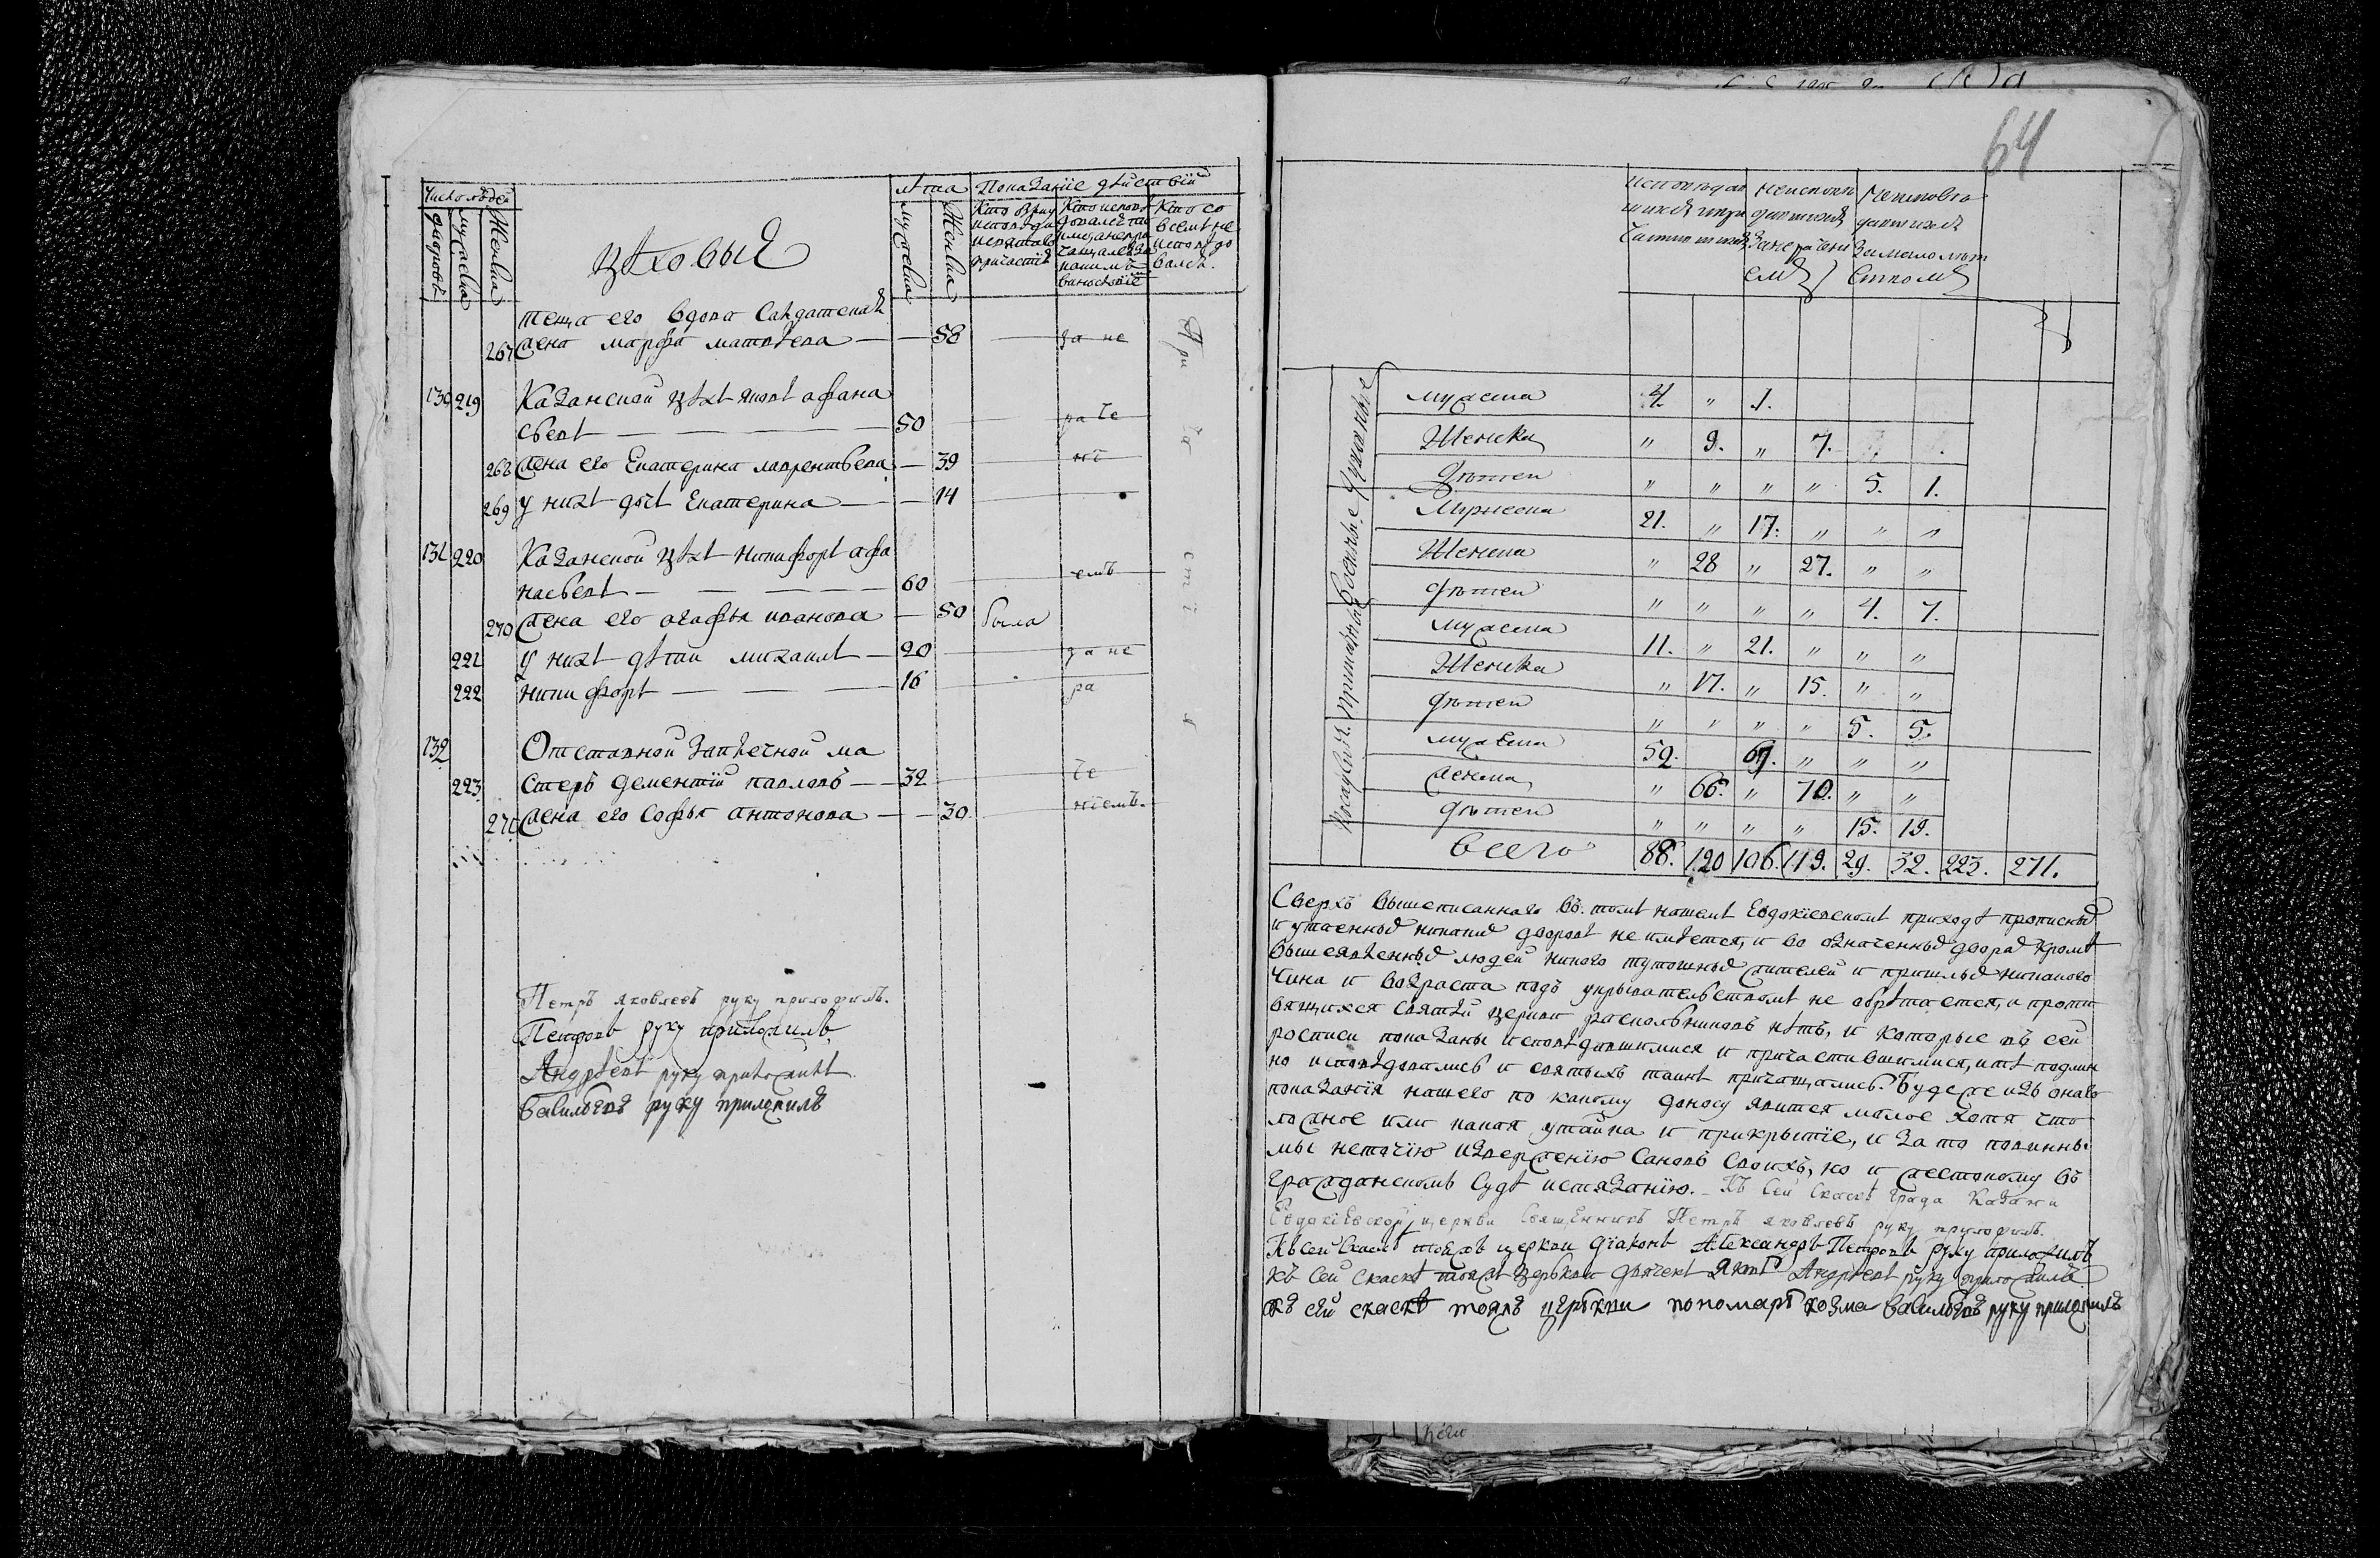 число людей
дворовъ
мужеска
женска
цѣховыя
лѣта
мужеска
женска
Показанїе дѣйствїй
Кто былъ у исповѣди и святаго причастїя
Кто исповѣдовался токмо а не причащался и за какимъ винословїемъ
Кто со всемъ не исповѣдовался.
теща его вдова салдатская
267 жена марфа матвѣева — — 58 за не
130 219 Казанской цѣхъ яковъ афана
сьевъ — — — — — 50 раче
268 жена его Екатерина лаврентьева — 39 нї
269 у нихъ дочь Екатерина — — 14
131 220 Казанской цѣхъ никифоръ афа
насьевъ — — — — 60 емъ
270 жена его агафья иванова — 50 была
221 у нихъ дѣти михаилъ — 20 за не
222 никифоръ — — — 16 ра
132 Отставной запѣчной ма
223 стеръ дементїй павловъ — 32 че
271 жена его софья антонова — — 30 нїемъ.
Петръ яковлевъ руку приложилъ.
Петровъ руку приложилъ
Андрѣевъ руку приложилъ
Васильевъ руку приложилъ
64
исповѣдав
шихся и при
частившихся
неисповѣ
давшихся
за нераченї
емъ
Неисповѣ
давшихся
за малолѣт
ствомъ
мужеска 4. „ 1.
Женска „ 9. „ 7.
дѣтей „ „ „ „ 5. 1.
Военные
Мужеска 21. „ 17. „ „ „
Женска „ 28 „ 27. „ „
дѣтей „ „ „ „ 4. 7.
Приказные
мужеска 11. „ 21. „ „ „
Женска „ 17. „ 15. „ „
дѣтей „ „ „ „ 5. 5.
Посацкия
мужеска 52. 67. „ „ „
женска „ 66. „ 70. „ „
дѣтей „ „ „ „ 15. 19.
всего 88. 120 106. 119. 29. 32. 223. 271.
Сверхъ вышеписаннаго въ томъ нашемъ Евдокїевскомъ приходѣ прописныхъ
и утаенныхъ никакихъ дворовъ не имѣется, и во означенныхъ дворахъ кромѣ
вышеявленныхъ людей никого тутошныхъ жителей и пришлыхъ никакого
чина и возраста подъ укрывательствомъ не обрѣтается, и проти
вящихся святѣй церкви раскольниковъ нѣтъ, и которые въ сей
росписи показаны исповѣдавшимися и причастившимися, и тѣ подлин
но исповѣдовались и святыхъ таинъ причащались. Буде же изъ онаго
показанїя нашего по какому доносу явится малое хотя что
ложное или какая утайка и прикрытїе, и за то повинны
мы неточїю изверженїю Сановъ Своихъ, но и жестокому въ
гражданскомъ Судѣ истязанїю. – Къ сей скаскѣ града Казани
Евдокїевской церкви Священникъ Петръ яковлевъ руку приложилъ.
Къ сей скаскѣ тояжъ церкви дїаконъ Александръ Петровъ руку приложилъ
Къ сей скаскѣ тояжъ церькви дьячекъ Яковъ Андрѣевъ руку приложилъ
Къ сей скаскѣ тояжъ церькви пономарь козма васильевъ руку приложилъ